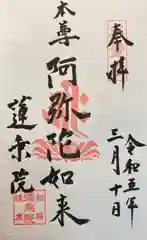 奉拝
令和五年
三月十日
本尊
阿弥陀如来
蓮乗院